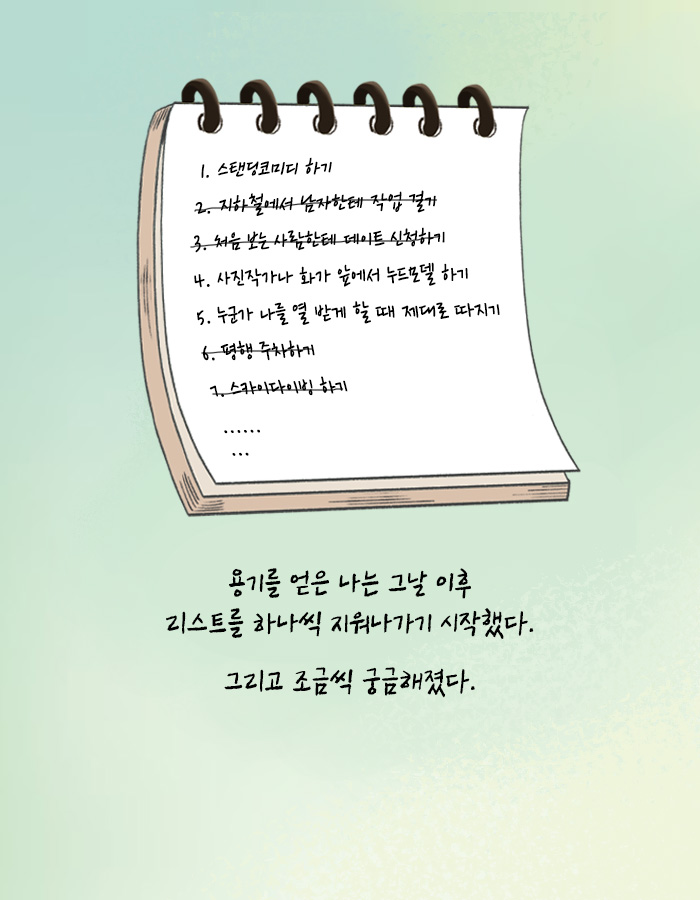 1. 스탠딩코미디 하기
2. 지하철에서 남자한테 작업 걸기
3. 처음 보는 사람한테 데이트 신청하기
4. 사진작가나 화가 앞에서 누드모델 하기
5. 누군가 나를 열 받게 할 때 제대로 따지기
6. 평행 주차하기
7. 스카이다이빙 하기
......
...
용기를 얻은 나는 그날 이후
리스트를 하나씩 지워나가기 시작했다.
그리고 조금씩 궁금해졌다.